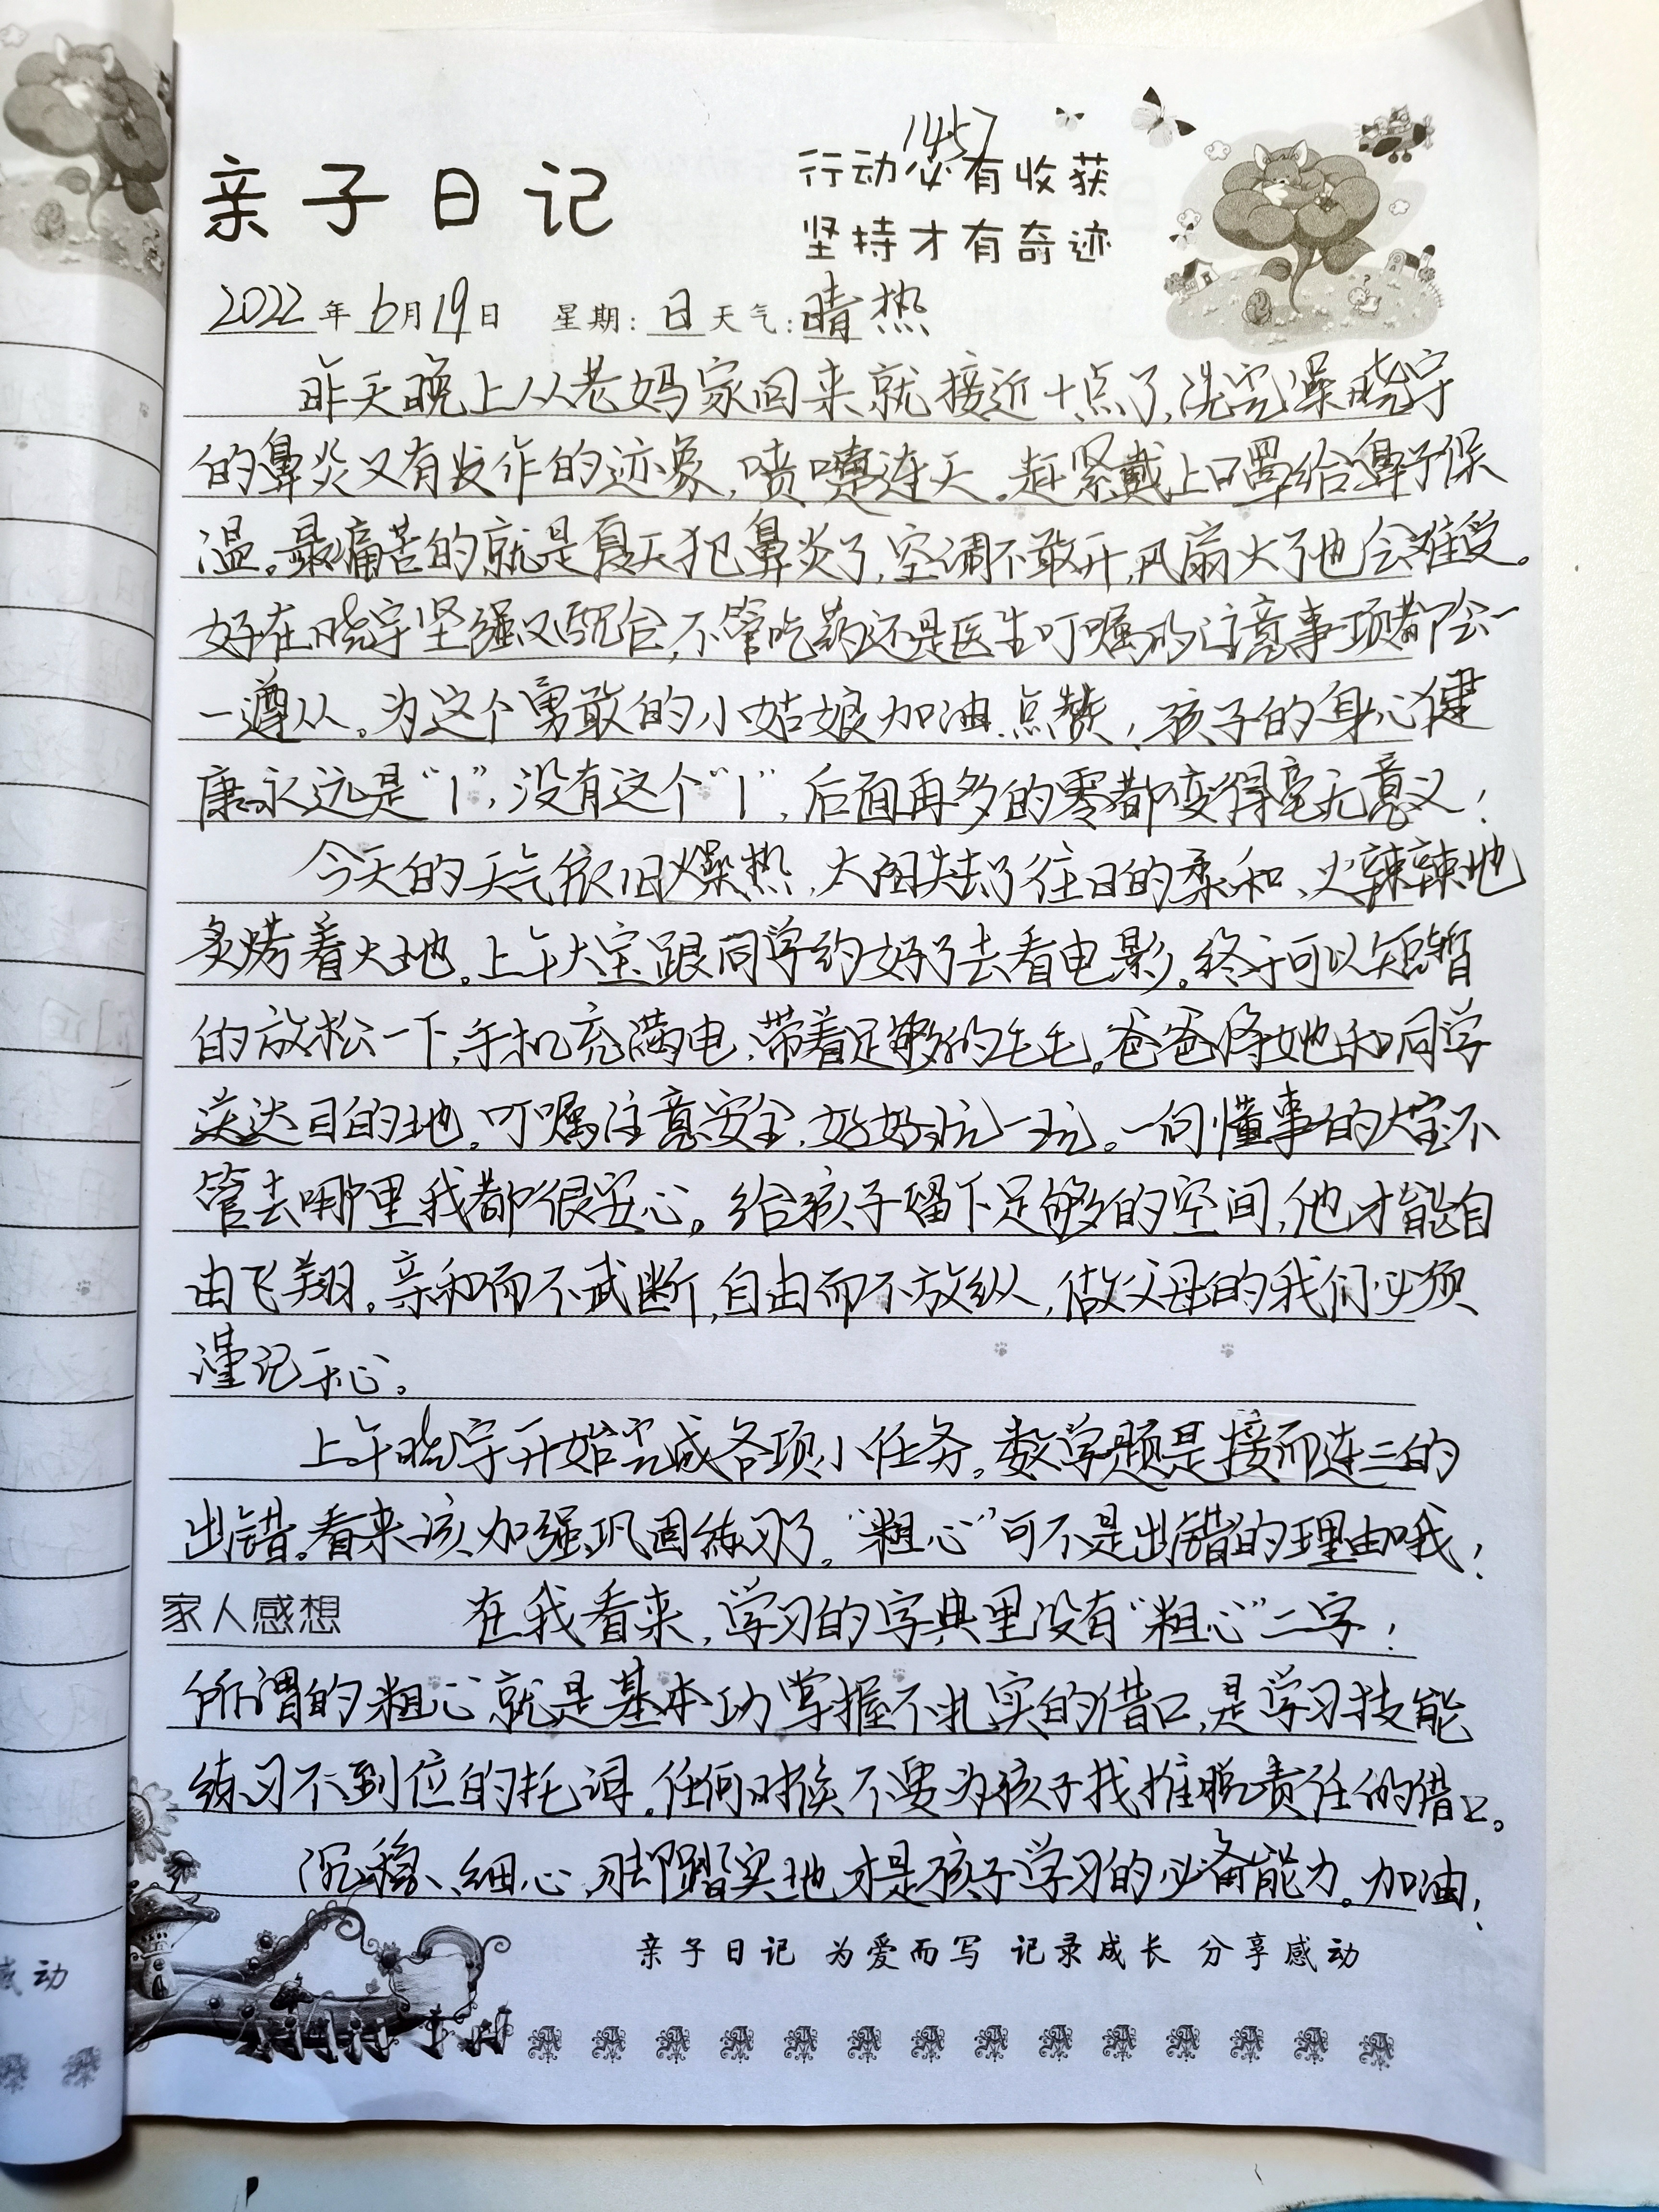 1457
亲子日记
行动必有收获
坚持才有奇迹
2022年6月19日 星期:日 天气:晴热
昨天晚上从老妈家回来就接近十点了,洗完澡晓宇
的鼻炎又有发作的迹象,喷嚏连天。赶紧戴上口罩给鼻子保
温。最痛苦的就是夏天犯鼻炎了,空调不敢开,风扇大了也会难受。
好在晓宇坚强又配合,不管吃药还是医生叮嘱的注意事项都会一
一遵从。为这个勇敢的小姑娘加油点赞!孩子的身心健
康永远是“1”,没有这个“1”,后面再多的零都变得毫无意义!
今天的天气依旧燥热,太阳失去了往日的柔和、火辣辣地
炙烤着大地。上午大宝跟同学约好了去看电影。终于可以短暂
的放松一下,手机充满电,带着足够的毛毛。爸爸将她和同学
送达目的地。叮嘱注意安全,好好玩一玩。一向懂事的大宝不
管去哪里我都很安心。给孩子留下足够的空间,他才能自
由飞翔。亲和而不武断,自由而不放纵,做父母的我们必须
谨记于心。
上午晓宇开始完成各项小任务。数学题是接而连三的
出错。看来该加强巩固练习了。“粗心”可不是出错的理由哦!
家人感想 在我看来,学习的字典里没有“粗心”二字!
所谓的粗心就是基本功掌握不扎实的借口,是学习技能
练习不到位的托词。任何时候不要为孩子找推脱责任的借口。
沉稳、细心、脚踏实地才是孩子学习的必备能力。加油!
亲子日记 为爱而写 记录成长 分享感动
感动